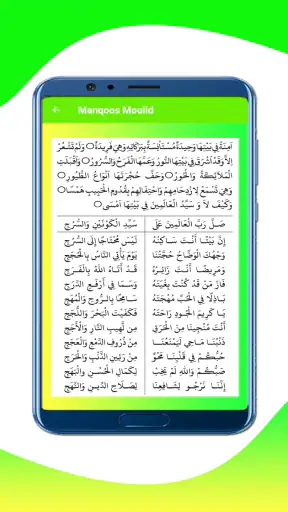 Manqoos Moulid
آمِنَةُ فِي بَيْتِهَا وَحِيدَةً مُسْتَأْنِسَةً بِبَرَكَاتِهِ وَهِيَ فَرِيدَةٌ ○ وَلَمْ تَشْعُرْ
إِلَّا وَقَدْ أَشْرَقَ فِي بَيْتِهَا النُّورُ وَعَمَّهَا الْفَرَحُ وَالسُّرُورُ ○ وَأَقْبَلَتِ
الْمَلَائِكَةُ وَالْحُورُ ○ وَحَفَّ حُجْرَتَهَا أَنْوَاعُ الطُّيُورِ ○
وَهِيَ تَسْمَعُ لِازْدِحَامِهِمْ وَاحْتِفَالِهِمْ بِقُدُومِ الْحَبِيبِ هَمْسًا ○
وَكَيْفَ لَا وَ سَيِّدُ الْعَالَمِينَ فِي بَيْتِهَا أَمْسَى ○
صَلِّ رَبَّ الْعَالَمِينَ عَلَى سَيِّدِ الْكَوْنَيْنِ وَالسُّرُجِ
إِنَّ بَيْتًا أَنْتَ سَاكِنُهُ لَيْسَ مُحْتَاجًا إِلَى السُّرُجِ
وَجْهُكَ الْوَضَّاحُ حُجَّتُنَا يَوْمَ يَأْتِي النَّاسُ بِالْحُجَجِ
وَمَرِيضًا أَنْتَ زَائِرُهُ قَدْ أَتَاهُ اللهُ بِالْفَرَجِ
فَازَ مَنْ قَدْ كُنْتَ بُغْيَتَهُ وَسَمَا فِي أَرْفَعِ الدَّرَجِ
بَاذِلًا فِي الْحُبِّ مُهْجَتَهُ سَامِحًا بِالرُّوحِ وَالْمُهَجِ
يَا كَرِيمَ الْجُودِ رَاحَتُهُ فَكَفَيْتَ الْبَحْرَ وَاللُّجَجِ
أَنْتَ مُنْجِينَا مِنَ الْحُرَقِ مِنْ لَهِيبِ النَّارِ وَالْأَجَجِ
ذَنْبُنَا مَاحِي لَيَمْنَعُنَا مِنْ ذُرُوفِ الدَّمْعِ وَالْعَجَجِ
حُبُّكُمْ فِي قَلْبِنَا مَحْوٌ مِنْ رَئِينِ الذَّنْبِ وَالْحَرَجِ
صَبُّكُمْ وَاللهِ لَمْ يَخِبْ لِكَمَالِ الْحُسْنِ وَالْبَهَجِ
إِنَّنَا نَرْجُو لِشَافِعِنَا لِصَلَاحِ الدِّينِ وَالنَّهَجِ